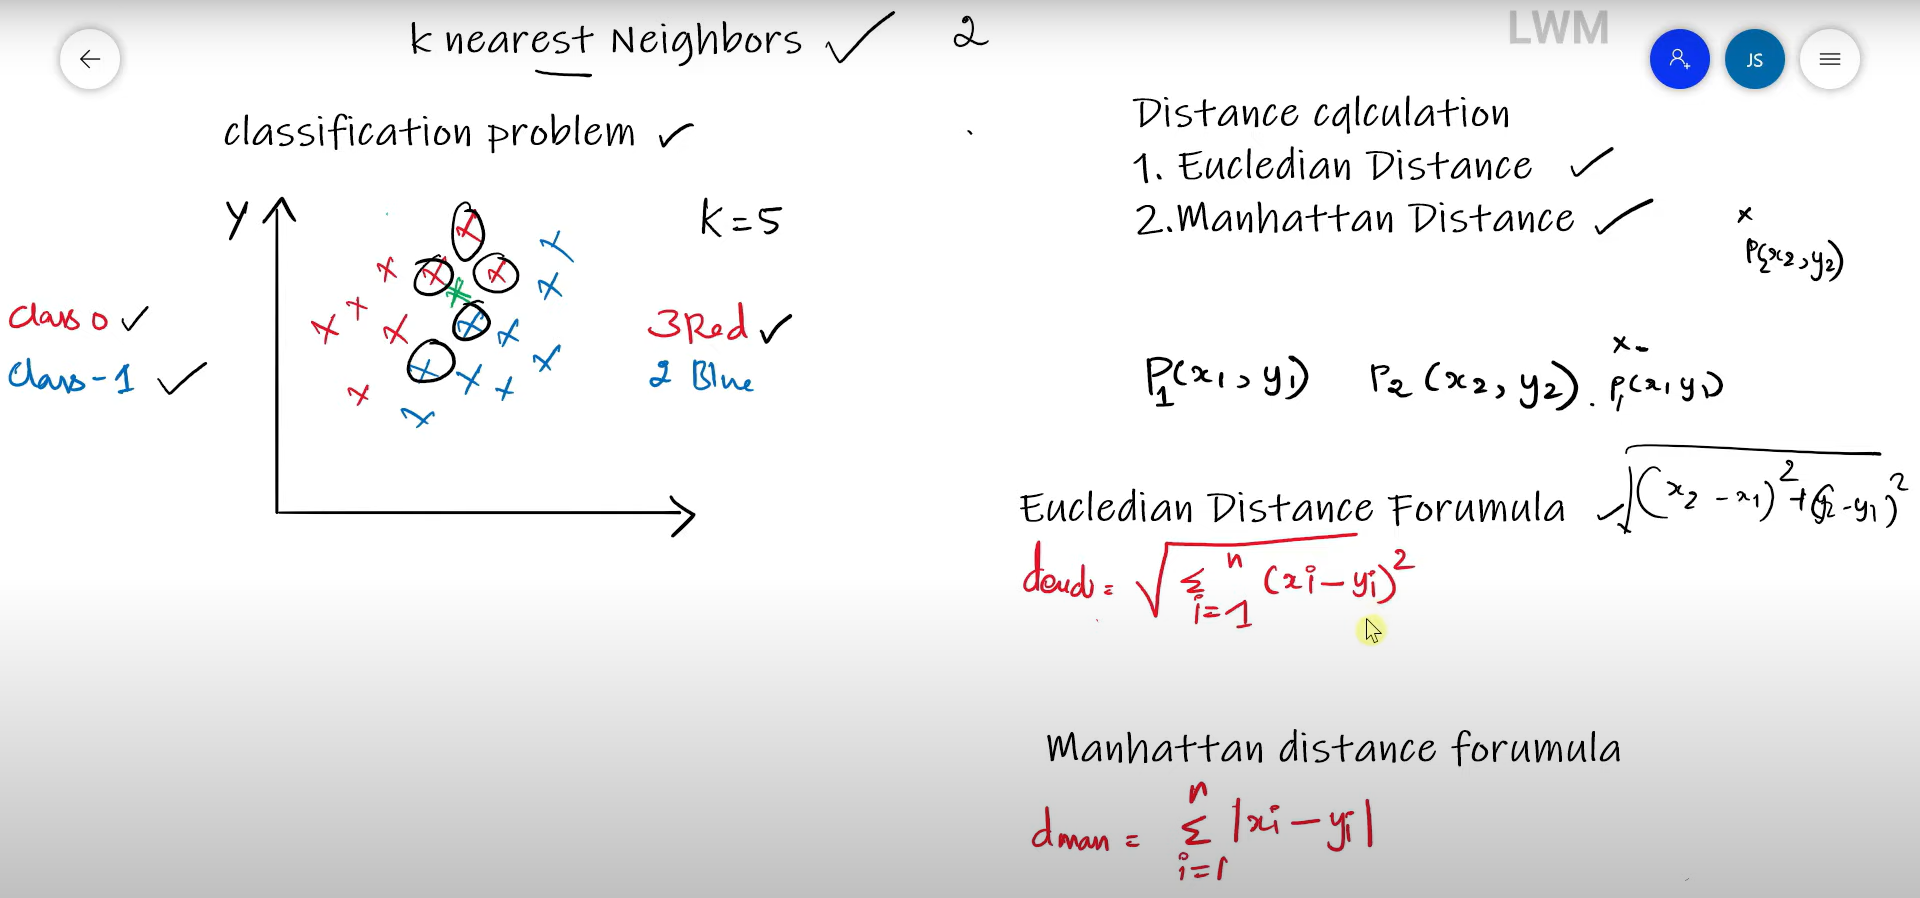 k nearest Neighbors ✓ 2
LWM
JS
classification problem ✓
Y
K=5
Class 0 ✓
Class-1 ✓
3 Red ✓
2 Blue
Distance calculation
1. Eucledian Distance ✓
2.Manhattan Distance ✓
x
P2(x2, y2)
P1(x1, y1) P2 (x2, y2)
x
P1(x1 y1)
Eucledian Distance Forumula ✓ √(x2 - x1)² + (y2 - y1)²
deud = √ Σ i=1 n (xi - yi)²
Manhattan distance forumula
dman = Σ i=1 n |xi - yi|